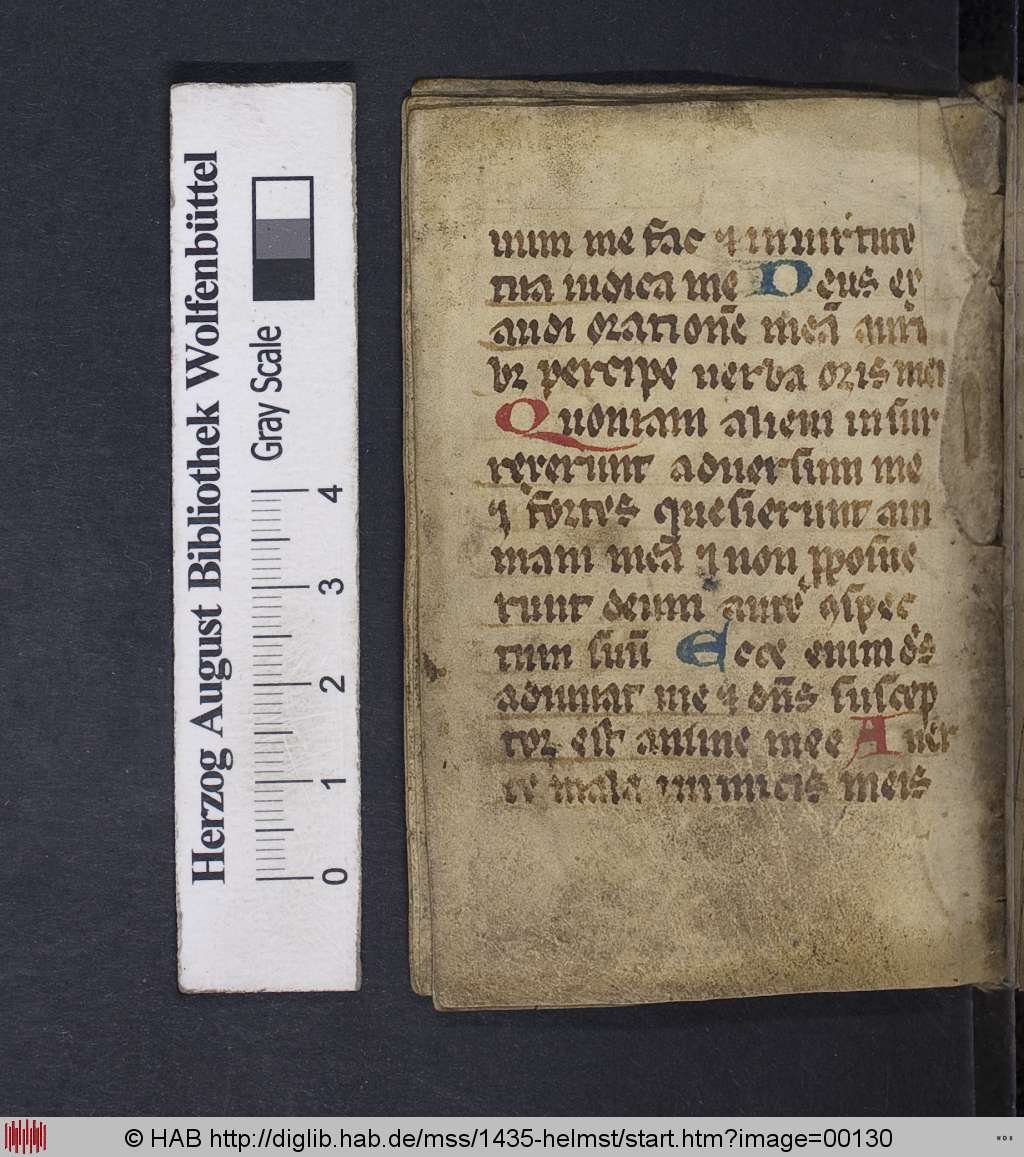 Herzog August Bibliothek Wolfenbüttel
Gray Scale
0 1 2 3 4
uum me fac ⁊ in uirtute
tua iudica me Deus ex
audi orationē meā auri
bꝫ percipe uerba oris mei
Quoniam alieni insur
rexerunt aduersum me
⁊ fortes quesierunt ani
mam meā ⁊ non ꝓposue
runt deum ante ꝯspec
tum suū Ecce enim ds̄
adiuuat me ⁊ dūs suscep
tor est anime mee Auer
te mala inimicis meis
© HAB http://diglib.hab.de/mss/1435-helmst/start.htm?image=00130